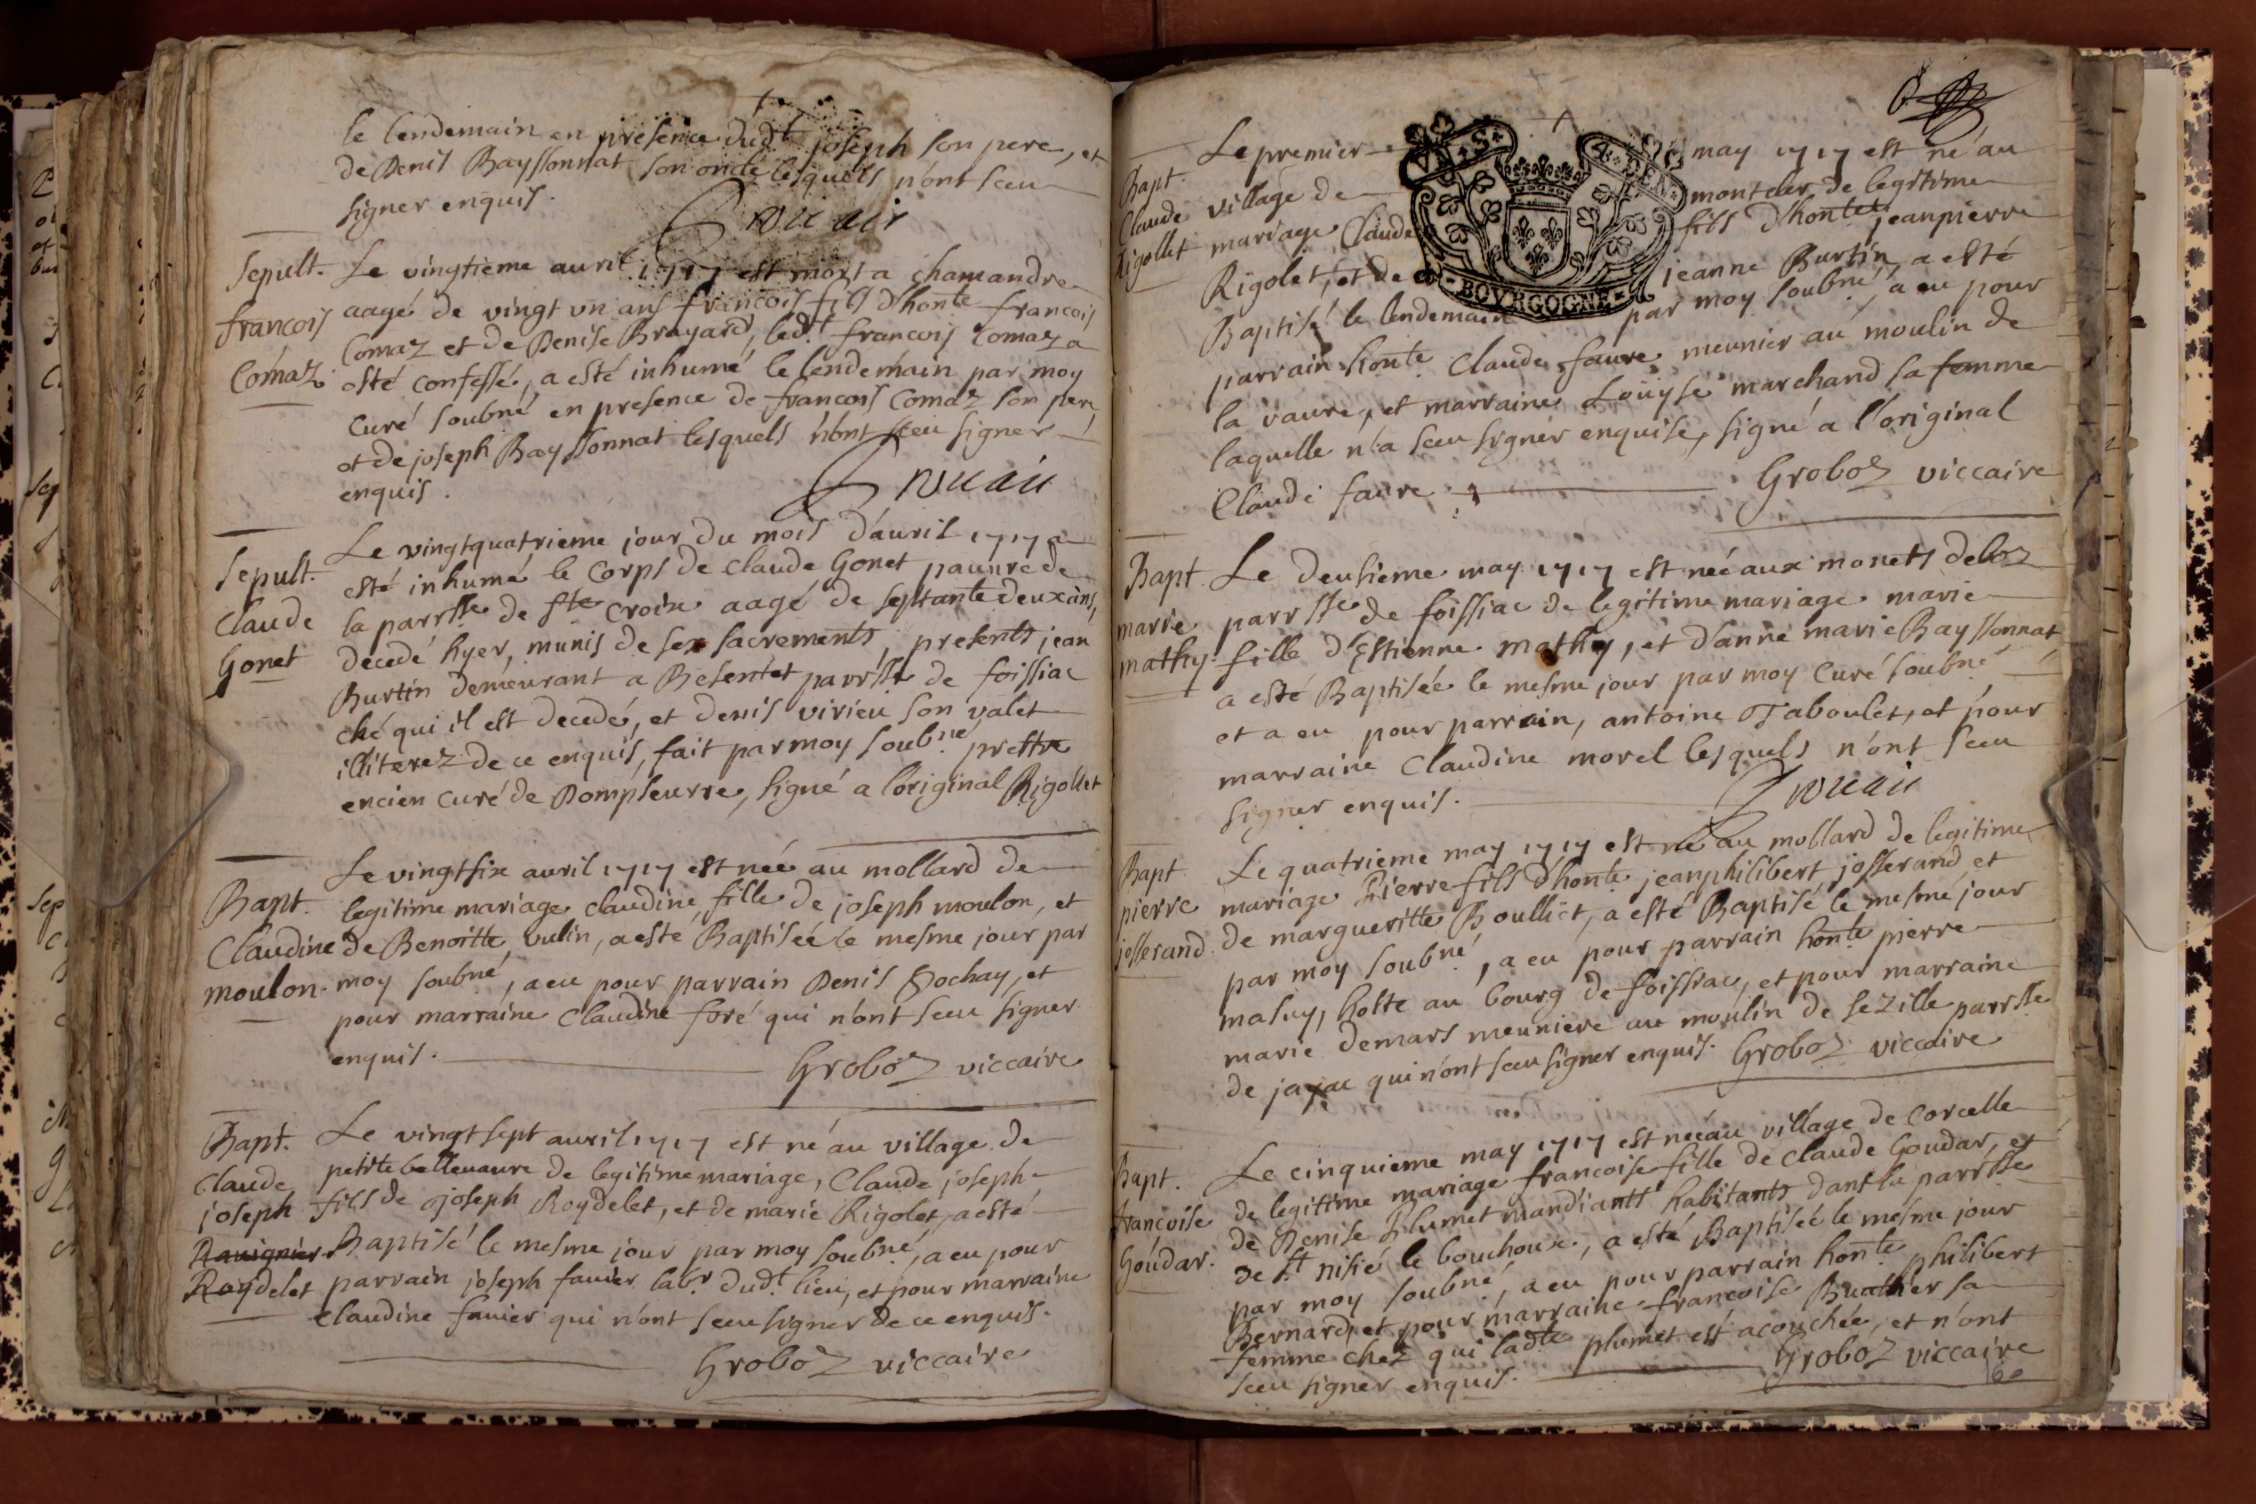 le lendemain en presence dud.t joseph son pere, et
de Denis Bayssonnat son oncle lesquels n'ont sceu
signer enquis.
Sepult.
francois
Comaz
Le vingtieme auril 1717 est mort a chamandre
aagé de vingt un ans francois fils d'honte francois
Comaz et de Denise Brayard, led.t francois Comaz a
esté confessé, a esté inhumé le lendemain par moy
Curé soubné en presence de francois Comaz son pere,
et de joseph Bayssonnat lesquels n'ont sceu signer
enquis.
Sepult.
Claude
Gonet
Le vingtquatrieme jour du mois d'auril 1717 a
esté inhumé le Corps de Claude Gonet pauure de
la parrsse de ste Croix aagé de septante deux ans,
decedé hyer, munis de ses sacrements, presents jean
Burtin demeurant a Besentet parrsse de foissiac
ché qui il est decedé, et denis virieu son valet
illiterez de ce enquis, fait par moy soubné prettre
encien curé de Dompseurre, signé a l'original Rigollet
Bapt.
Claudine
moulon.
Le vingtsix auril 1717 est née au mollard de
legitime mariage claudine fille de joseph moulon, et
de Benoitte vulin, a esté Baptisée le mesme jour par
moy soubné, a eu pour parrain Denis Bochay, et
pour marraine Claudine foré qui n'ont sceu signer
enquis.
Groboz viccaire
Bapt.
Claude
joseph
Roydelet
Le vingt sept auril 1717 est né au village de
petite belleuaure de legitime mariage, Claude joseph
fils de joseph Roydelet, et de marie Rigolet, a esté
Baptisé le mesme jour par moy soubné, a eu pour
parrain joseph fauier labr. dud.t lieu, et pour marraine
Claudine fauier qui n'ont sceu signer de ce enquis.
Groboz viccaire
Bapt.
Claude
Rigollet
Le premier may 1717 est né au
village de montcler, de legitime
mariage Claude fils d'honte jeanpierre
Rigolet, et de jeanne Burtin, a esté
Baptisé le lendemain par moy soubné, a eu pour
parrain honte Claude faure meunier au moulin de
la vaure, et marraine Loüyse marchand sa femme
laquelle n'a sceu signer enquise, signé a l'original
Claude faure
Groboz viccaire
BOVRGOGNE
Bapt.
marie
mathy
Le deusieme may 1717 est née aux monets deloz
parrsse de foissiac de legitime mariage marie
fille d'Estienne mathy, et d'anne marie Bayssonnat
a esté Baptisée le mesme jour par moy Curé soubné
et a eu pour parrain, antoine Taboulet, et pour
marraine Claudine morel lesquels n'ont sceu
signer enquis.
Bapt.
pierre
josserand.
Le quatrieme may 1717 est né au mollard de legitime
mariage Pierre fils d'honte jeanphilibert josserand et
de margueritte Boulliet, a esté Baptisé le mesme jour
par moy soubné, a eu pour parrain honte pierre
masuy, hoste au bourg de foissiac, et pour marraine
marie demars meuniere au moulin de sezille parrsse
de jayac qui n'ont sceu signer enquis. Groboz viccaire
Bapt.
francoise
Goudar.
Le cinquieme may 1717 est née au village de Corcelle
de legitime mariage francoise fille de Claude Goudar, et
de Denise Plumet mandiants habitants dans la parrsse
de st nisié le bouchoux, a esté Baptisée le mesme jour
par moy soubné, a eu pour parrain honte philibert
Bernard, et pour marraine francoise Buathier sa
femme chez qui ladte plumet est acouchée, et n'ont
sceu signer enquis.
Groboz viccaire
60